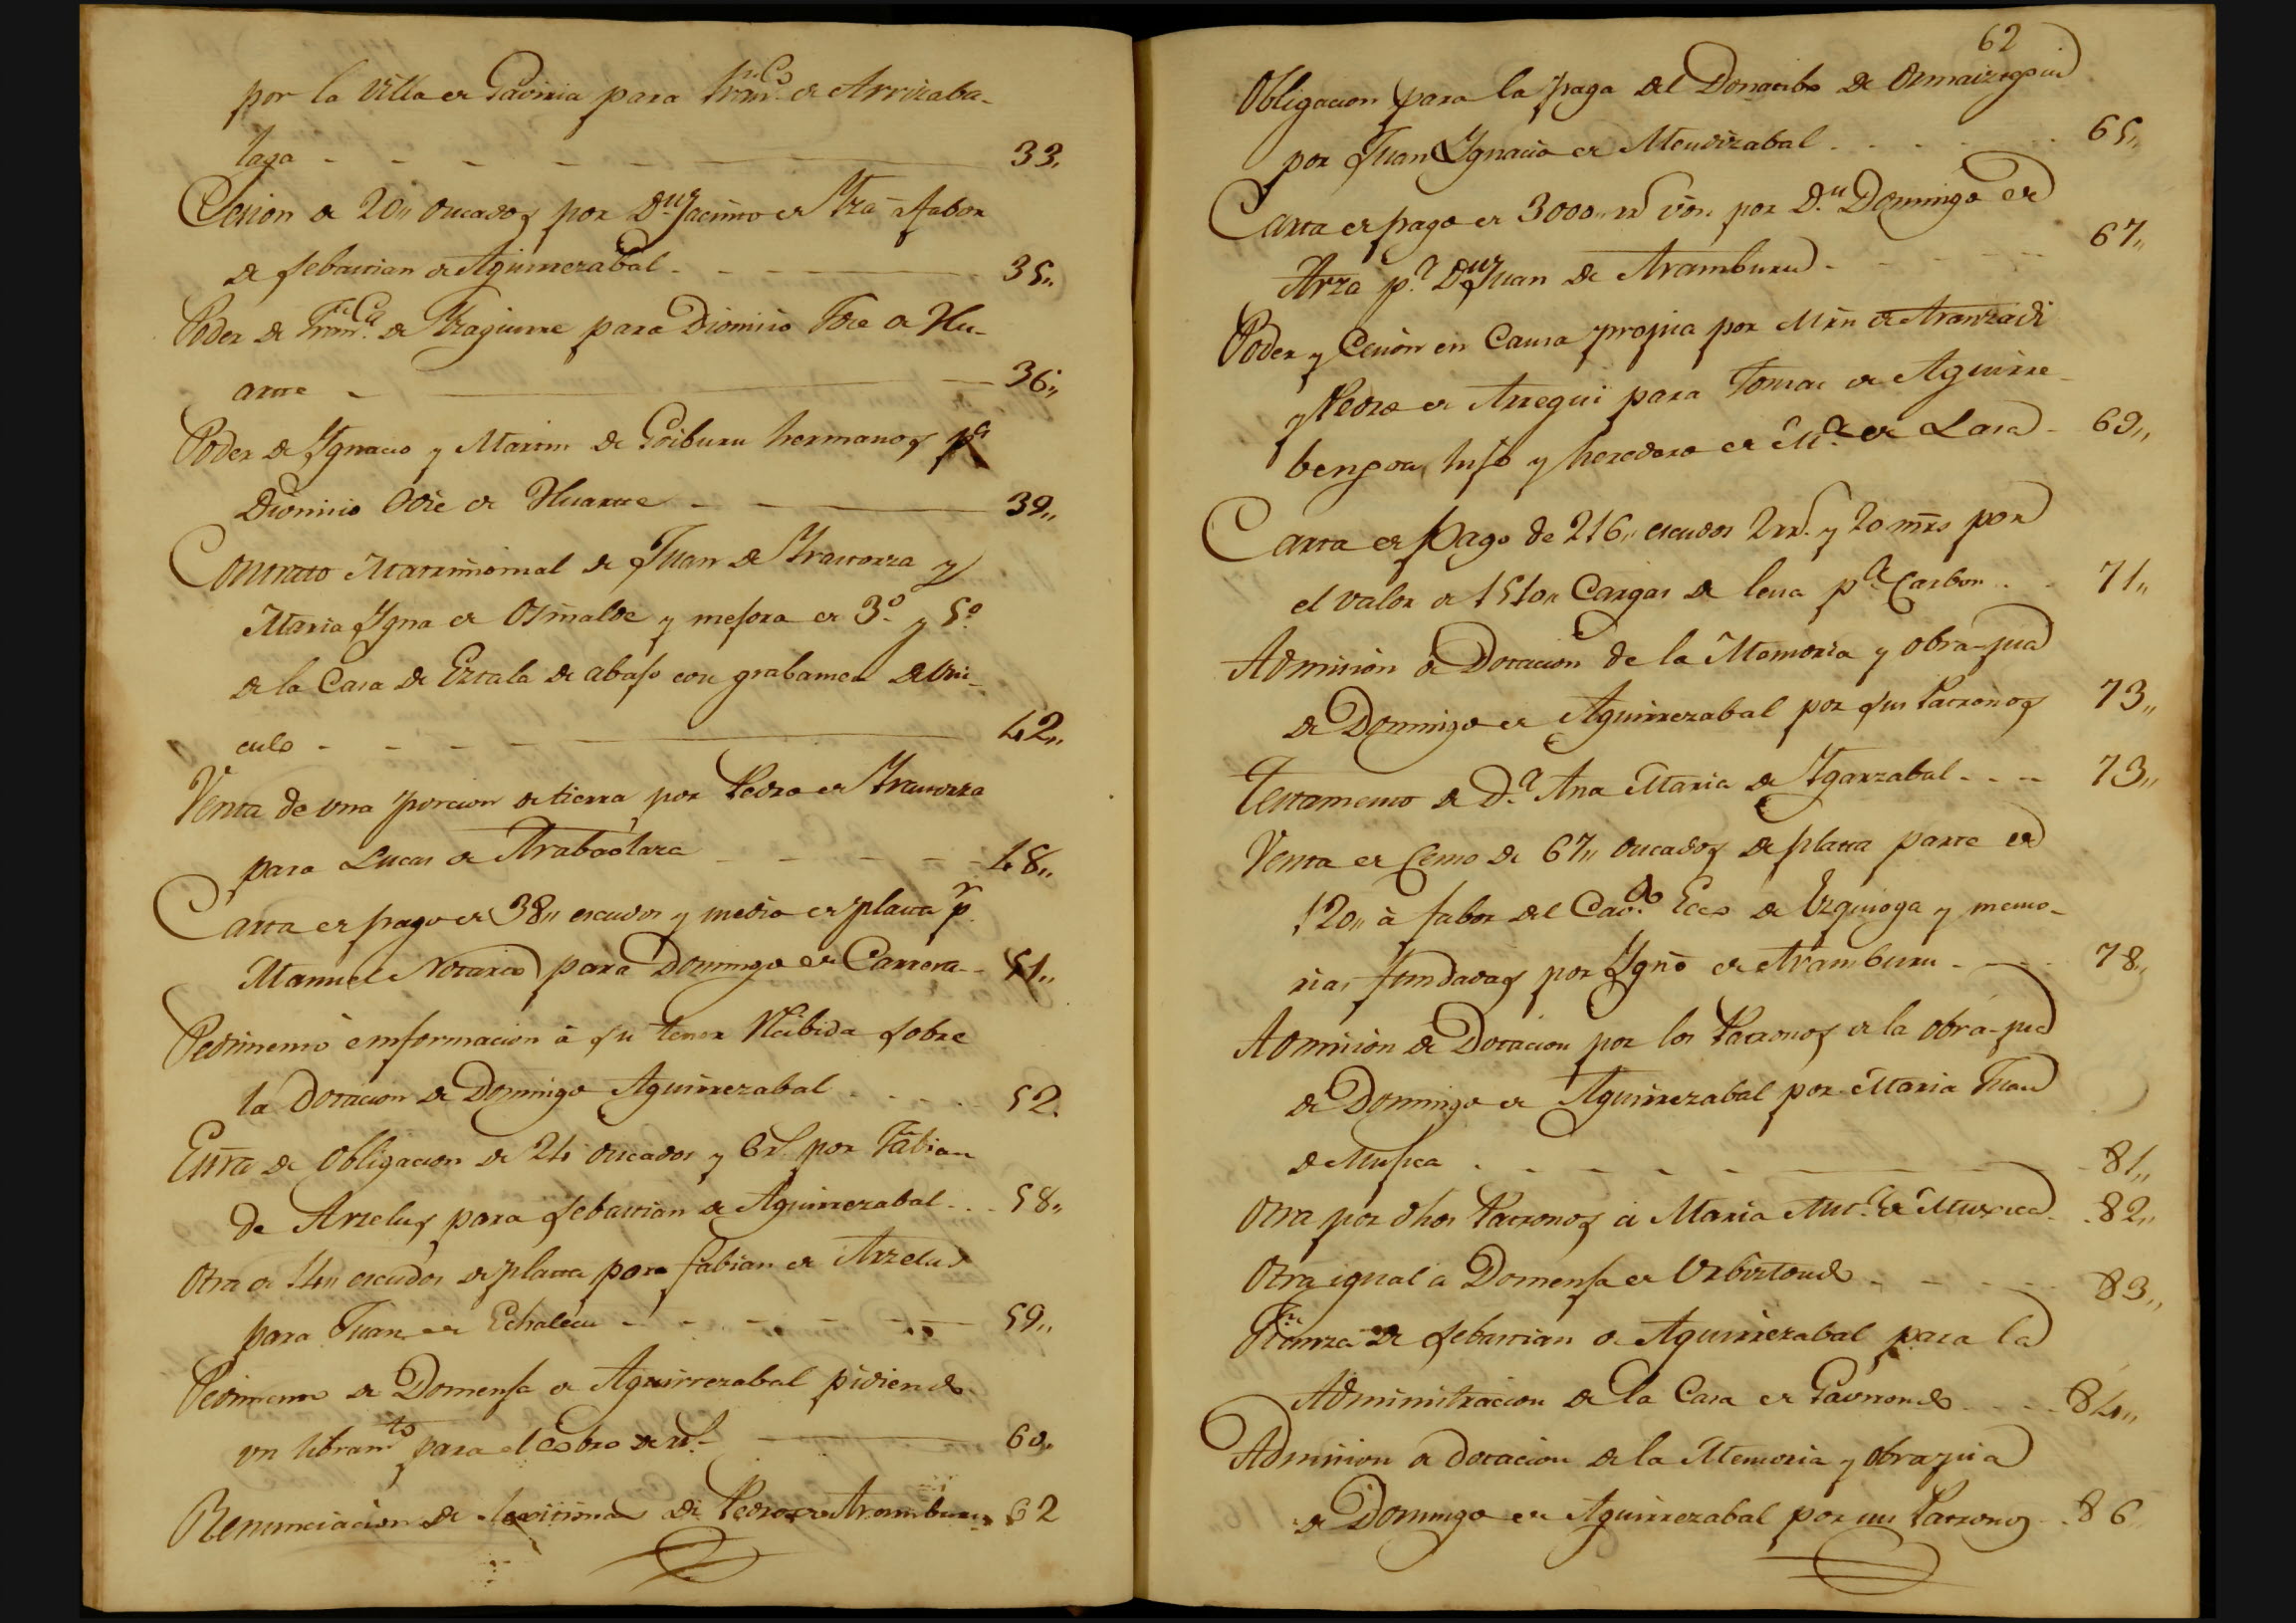 por la Villa de Gaviria para Fran.co de Arrizaba-
laga - - - - - 33,,
Cesion de 20,, ducados por D.n Jacinto de Yza a fabor
de sebastian de Aguirrezabal - - - 35,,
Poder de Fran.ca de Yzaguirre para Dionisio Jose de Hu-
arte - 36,,
Poder de Ygnacio y Martin de Goiburu hermanos p.a
Dionisio Jose de Huarte - - 39,,
Contrato Matrimonial de Juan de Yrastorza y
Maria Ygna de Osinalde y mejora de 3.o y 5.o
de la Casa de Eztala de abajo con grabamen de vin-
culo - - - - 42,,
Venta de una porcion de tierra por Pedro de Yrastorza
para Lucas de Arabaolaza - - - - 48,,
Carta de pago de 38,, escudos y medio de plata p.r
Manuel Notario para Domingo de Carrera - 51,,
Pedimento e informacion à su tenor Recibida sobre
la Dotacion de Domingo Aguirrezabal . . . . 52.
Esñra de Obligacion de 24 ducados y 6 r.s por Fabian
de Arzelus para sebastian de Aguirrezabal . . . 58,,
Otra de 14,, escudos de plata por fabian de Arzelus
para Juan de Echalecu - - - - - 59,,
Pedimento de Domensa de Aguirrezabal pidiendo
un libram.to para el cobro de r.s - 60,,
Renunciacion de lexitima de Pedro de Aramburu 62
62
Obligacion para la paga del Donatibo de Ormaiztegui
por Juan Ygnacio de Mendizabal . . . . . 65,,
Carta de pago de 3000,, rs von por D.n Domingo de
Arza p.a D.n Juan de Aramburu - - - - 67,,
Poder y Cesion en Causa propia por Mrn de Aranzadi
y Pedro de Arregui para Tomas de Aguirre-
bengoa hijo y heredero de M.a de Lasa - 69,,
Carta de Pago de 216,, escudos 2 rs. y 20 mrs por
el valor de 1510,, Cargas de leña p.a Carbon . . 71,,
Admision à Dotacion de la Memoria y obra-pia
de Domingo de Aguirrezabal por sus Patronos 73,,
Testamento de D.a Ana Maria de Ygarzabal - - - 73,,
Venta de Censo de 67,, ducados de plata parte de
120,, à fabor del Cav.do Ecco de Ezquioga y memo-
rias fundadas por Ygn.o de Aramburu - - - . 78,,
Admision de Dotacion por los Patronos de la obra-pia
de Domingo de Aguirrezabal por Maria Juan
de Mujica . - - - - - 81,,
Otra por dhos Patronos à Maria Ant.a de Muxica . 82,,
Otra igual a Domensa de Urbiztondo - - - - 83,,
Fianza de sebastian de Aguirrezabal para la
Administracion de la Casa de Gaviriondo . . . . 84,,
Admision a dotacion de la Memoria y Obrapia
de Domingo de Aguirrezabal por sus Patronos . 86